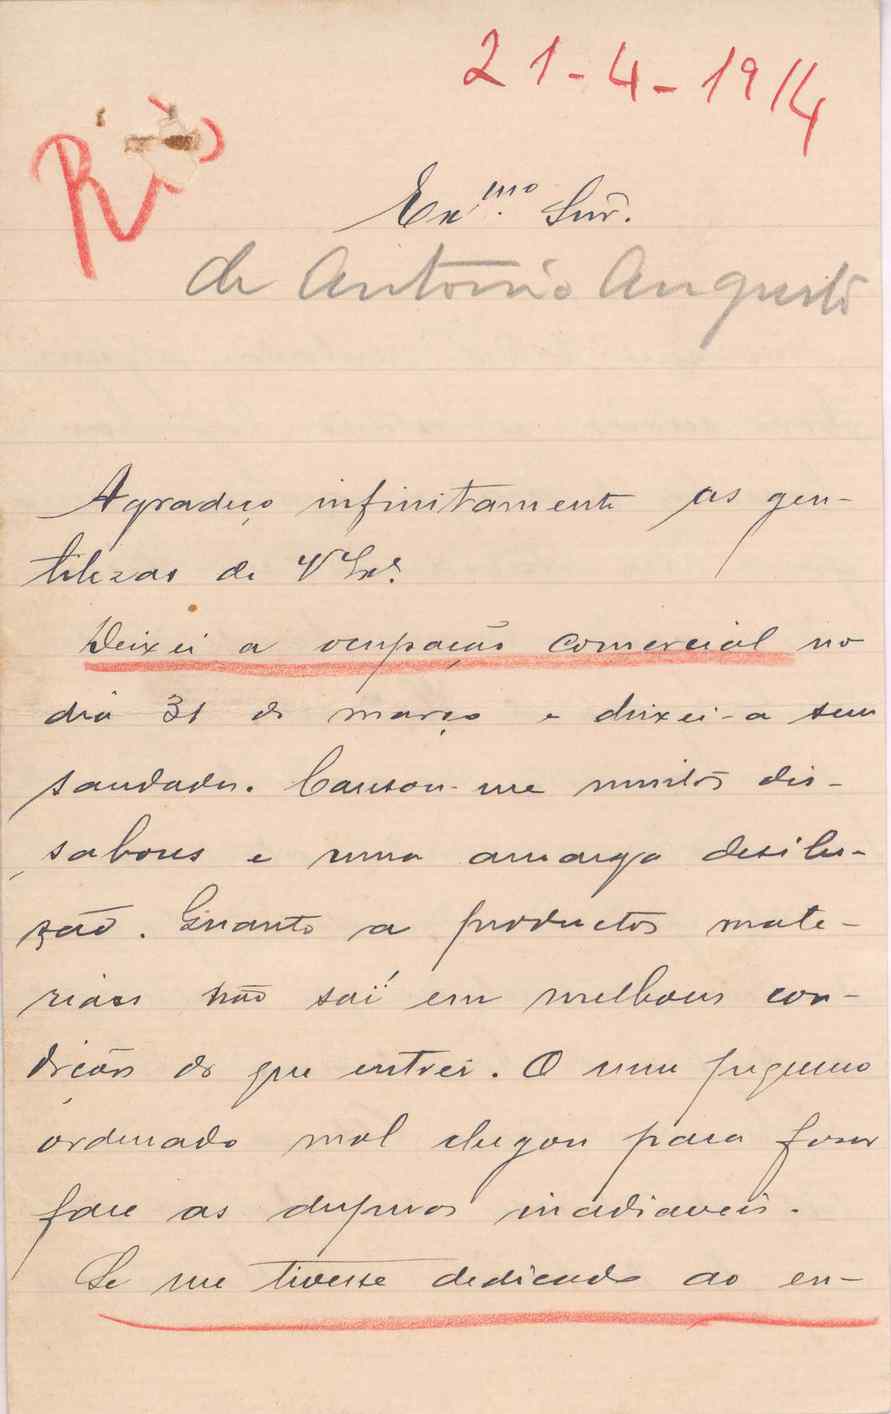 21-4-1914
Rio
Exmo. Snr.
de António Augusto
Agradeço infinitamente as gen-
tilezas de V Exª.
Deixei a ocupação comercial no
dia 31 de março e deixei-a sem
saudades. Causou-me muitos dis-
sabores e uma amarga desilu-
zão. Quanto a productos mate-
riaes não saï em melhores con-
dições do que entrei. O meu pequeno
ordenado mal chegou para fazer
face as despezas inadiaveis.
Se me tivesse dedicado ao en-